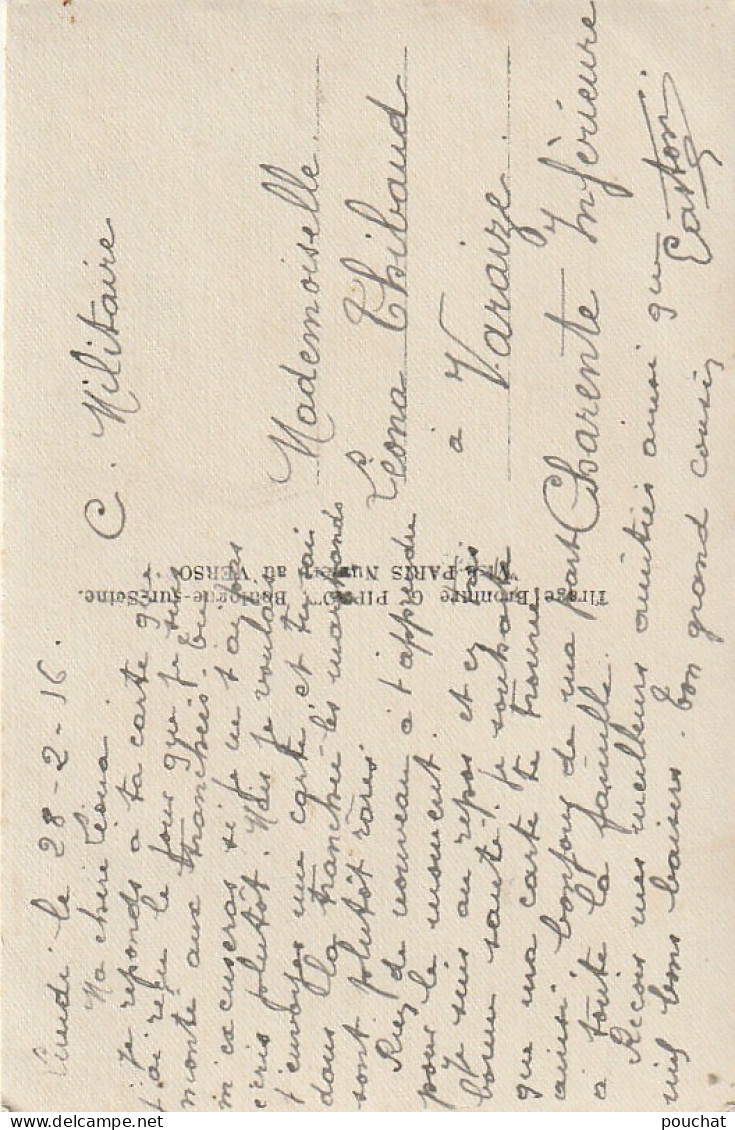 Lundi le 28-2-16.
Ma chère Léona.
Je reponds a ta carte que
j'ai reçue le jour que je suis
monté aux tranchées. Tu
m'excuseras si je ne t'ai pas
écris plutôt. Mais je voulais
t'envoyer une carte, et tu sais
dans la tranchée les marchands
sont plutôt rares
Rien de nouveau à t'apprendre
pour le moment.
Je suis au repos et en très
bonne santé. Je souhaite
que ma carte te trouve
ainsi bonjour de ma part
a toute la famille.
Recois mes meilleurs amitiés ainsi que
mil bons baisers. ton grand cousin
Gaston.
C. Militaire
Mademoiselle.
Léona Thibaud
à Varaize.
Charente Inférieure
Tirage Bromure G. PIPROT Boulogne-sur-Seine.
Visé PARIS Numéro au VERSO
pouchat